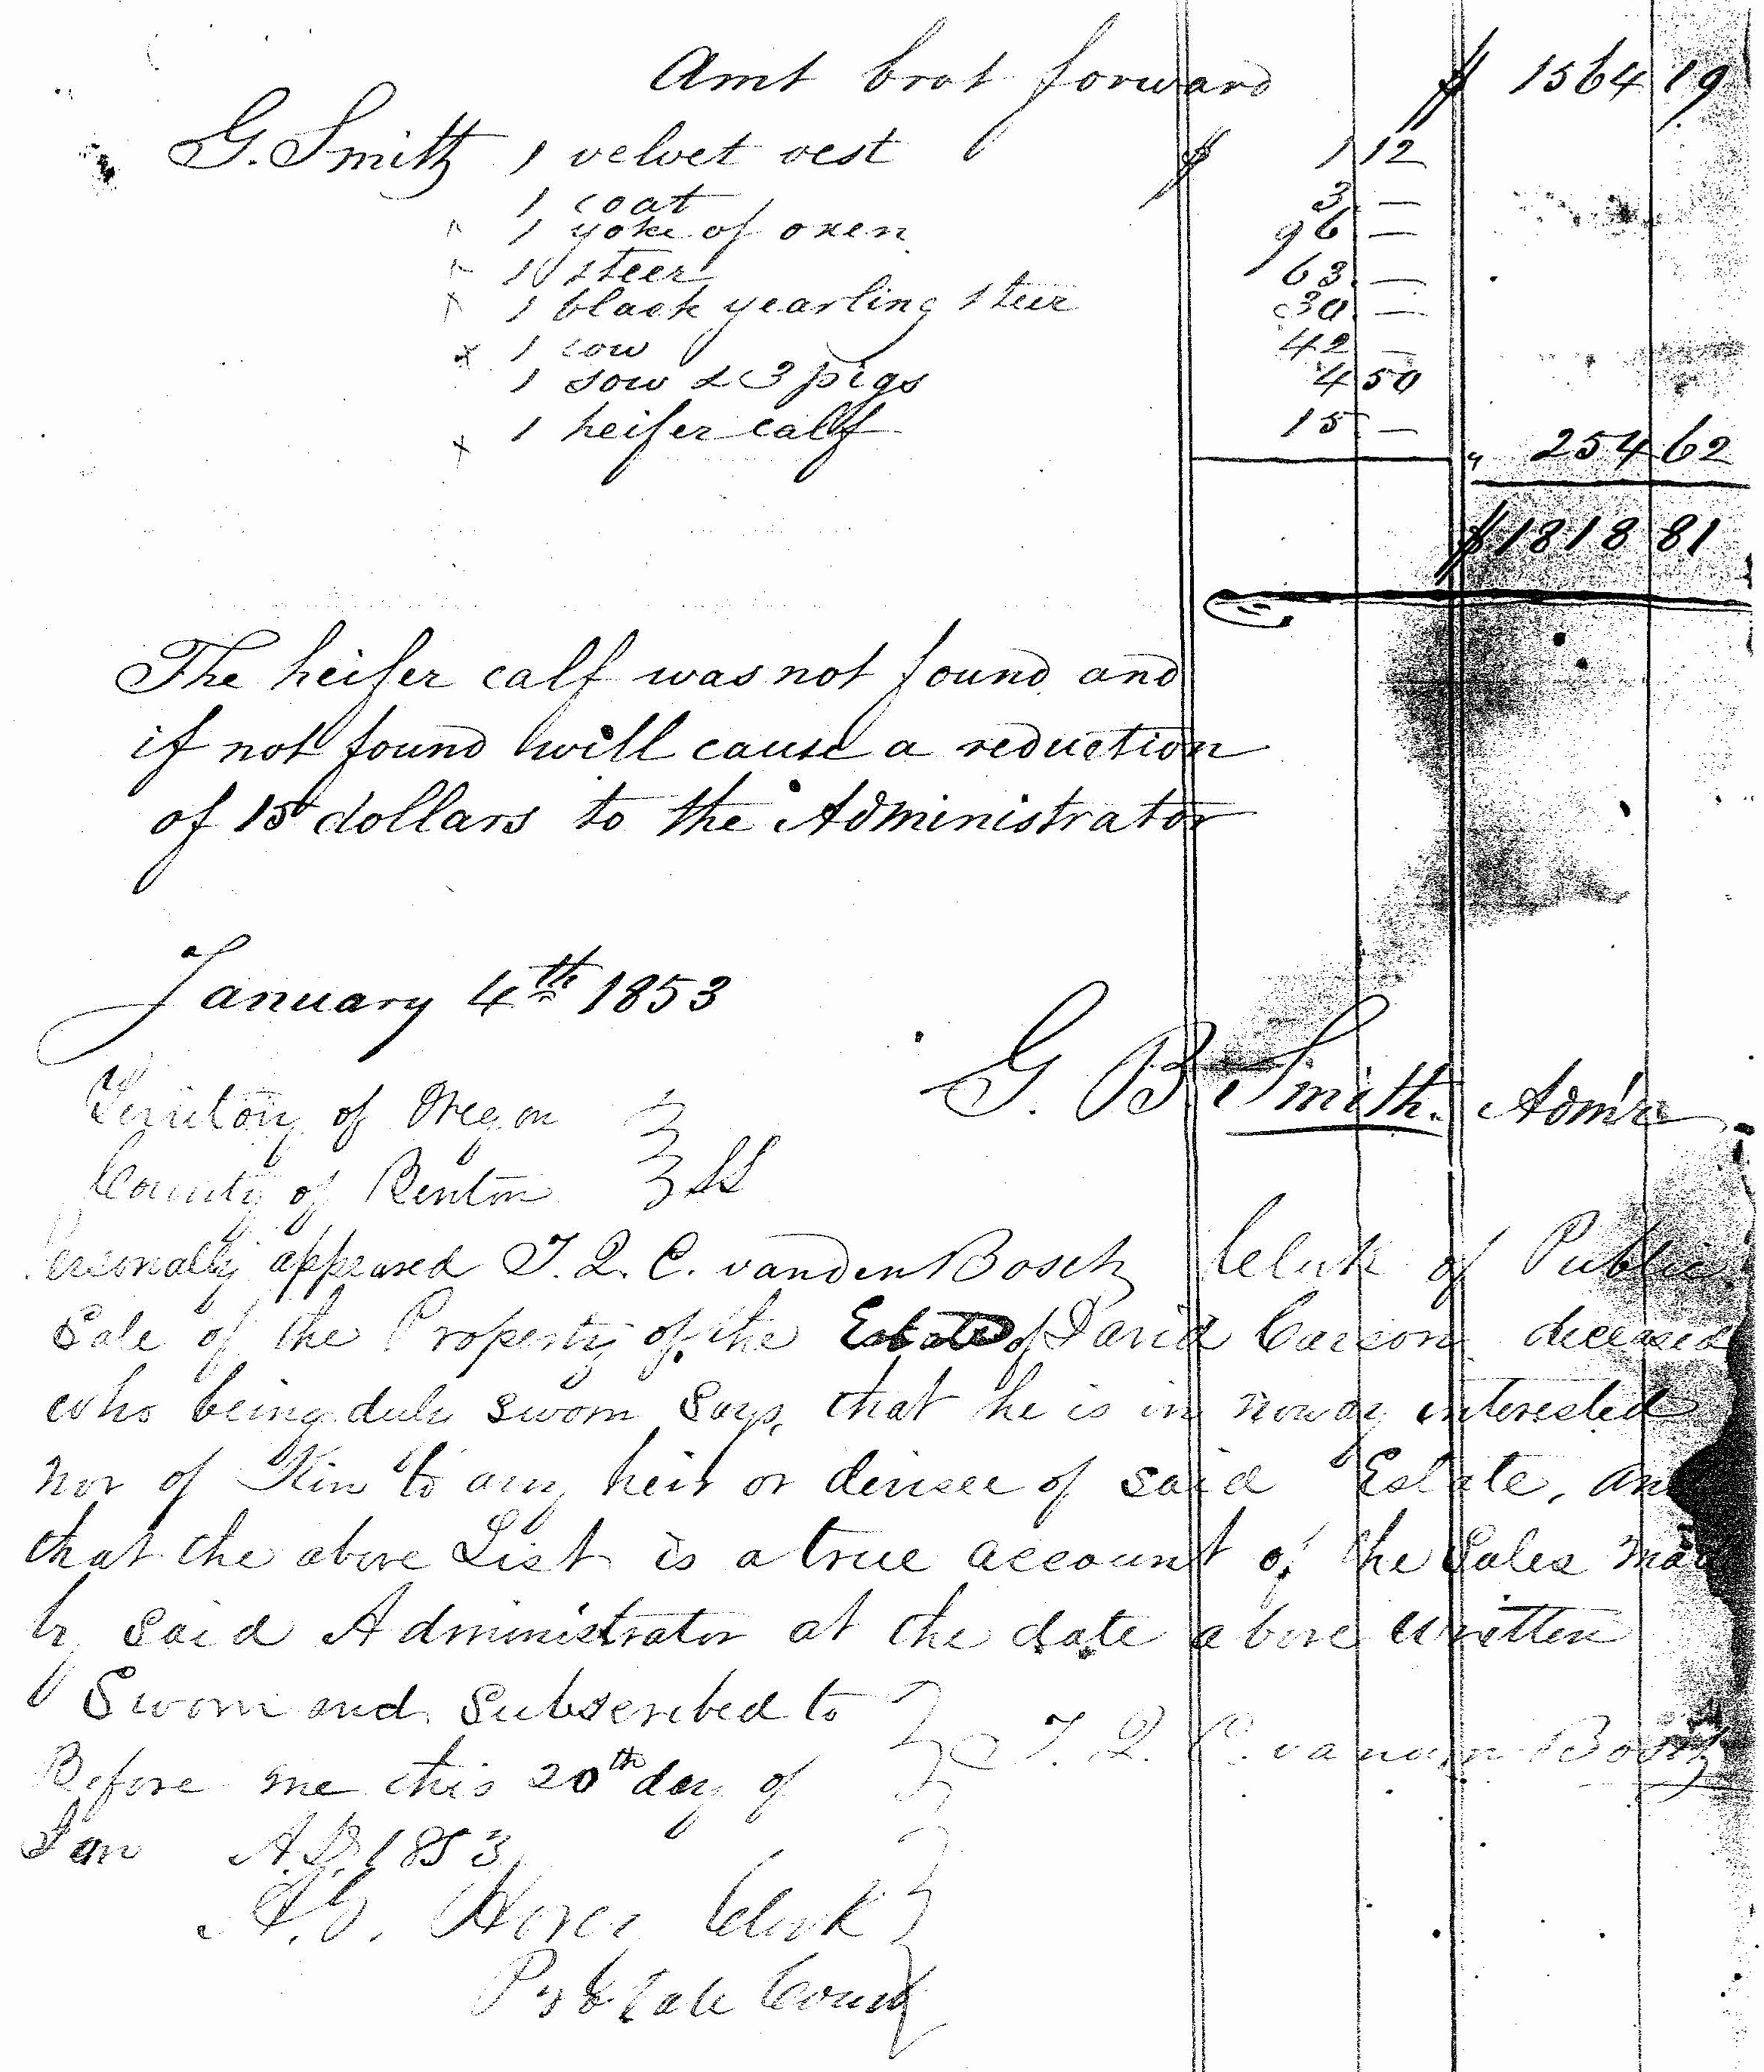 Amt brot forward $ 1564 19
G. Smith 1 velvet vest $ 1 12
1 coat 3 —
1 yoke of oxen 96 —
1 steer 63 —
1 black yearling steer 30 —
x 1 cow 42 —
1 sow & 3 pigs 4 50
x 1 heifer calf 15 —
" 254 62
$ 1818 81
The heifer calf was not found and
if not found will cause a reduction
of 15 dollars to the Administrator
January 4th 1853
G. B Smith. Adm'r
Territory of Oregon
County of Benton } SS
Personally appeared T. J. C. vanden Bosch Clerk of Public
Sale of the Property of the Estate of David Carson deceased
who being duly sworn says, that he is in no way interested
nor of Kin to any heir or devisee of said Estate, and
that the above List is a true account of the Sales made
by said Administrator at the date above written
Sworn and Subscribed to
Before me this 20th day of
Jan A.D. 1853
vanden Bosch
A. G. Hovey Clerk
Probate Court